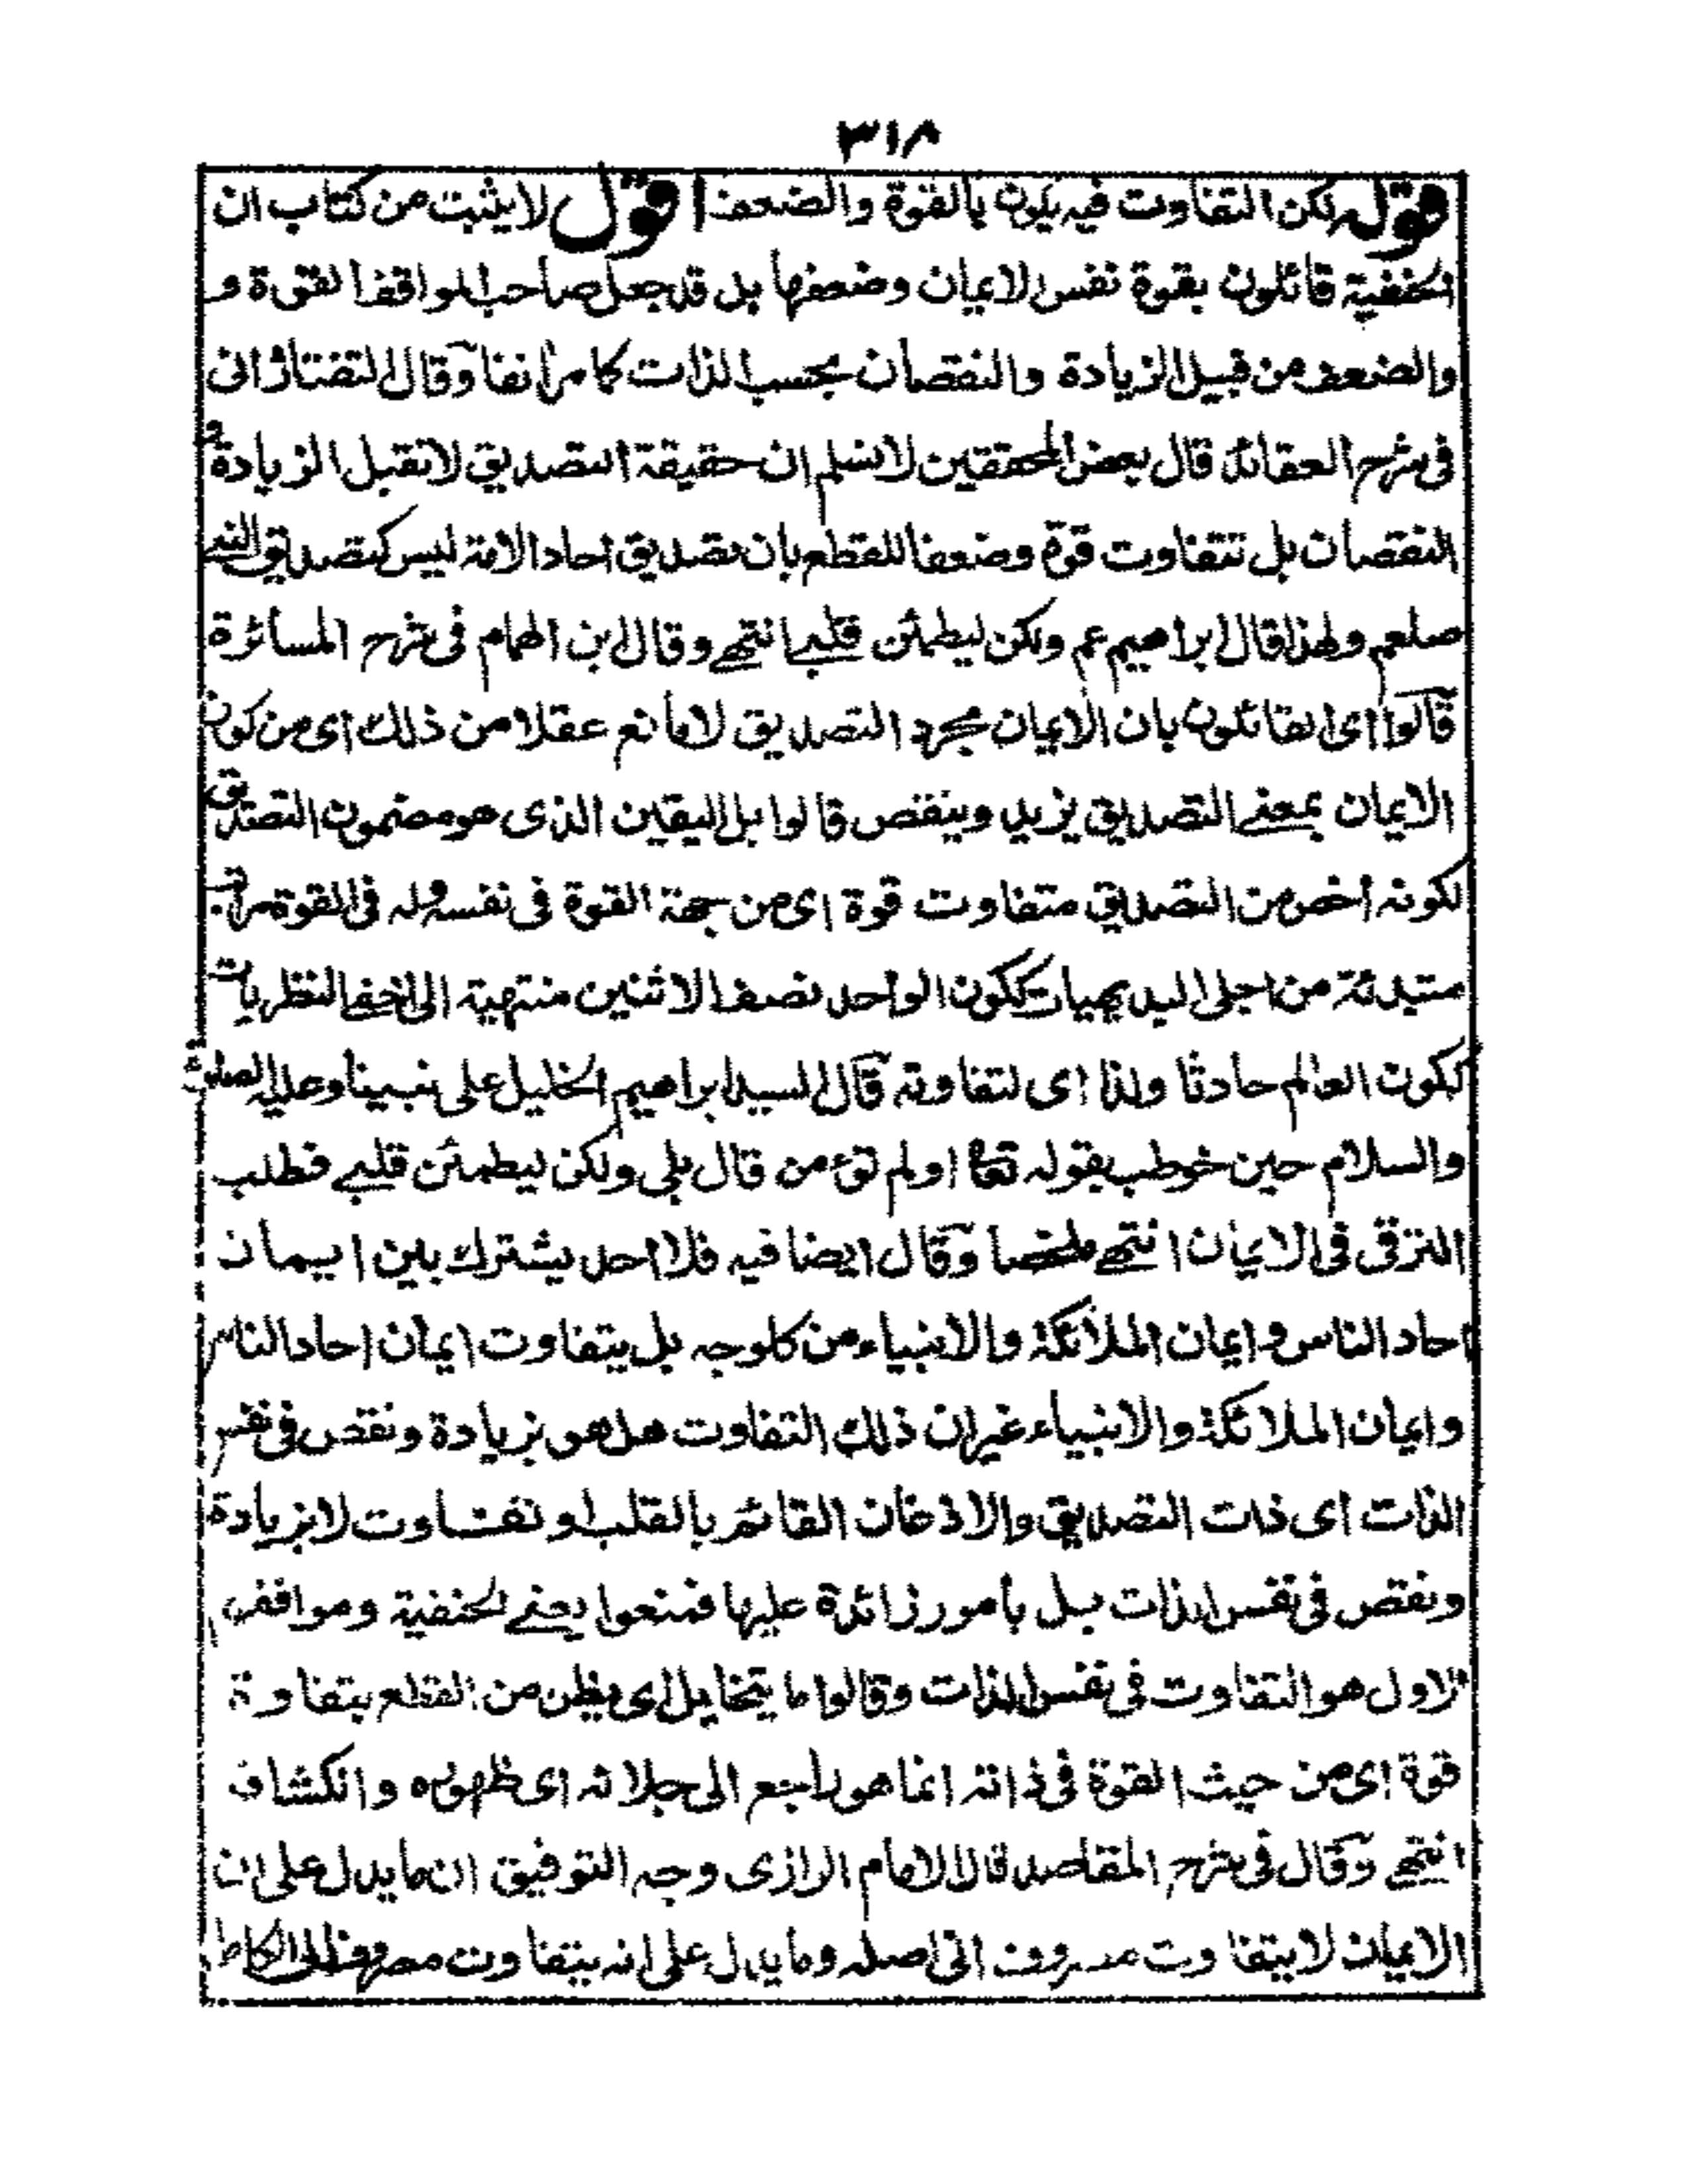 ٣١٨
قوله لكن التفاوت فيه يكون بالقوة والضعف اقول لا يثبت من كتاب ان
الحنفية قائلون بقوة نفس الايمان وضعفها بل قد جعل صاحب المواقف القوة و
والضعف من قبيل الزيادة والنقصان بحسب الذات كما مر انفا وقال التفتازانى
فى شرح العقائد قال بعض المحققين لا نسلم ان حقيقة التصديق لا تقبل الزيادة و
النقصان بل تتفاوت قوة وضعفا للقطع بان تصديق احاد الامة ليس كتصديق النبے
صلعم ولهذا قال ابراهيم عم ولكن ليطمئن قلبے انتهے وقال ابن الهمام فى شرح المسائرة
قالوا اى القائلون بان الايمان مجرد التصديق لا مانع عقلا من ذلك اى من كون
الايمان بمعنے التصديق يزيد وينقص قالوا بل اليقين الذى هو مضمون التصديق
لكونه اخص من التصديق متفاوت قوة اى من جهة القوة فى نفسه وله فى القوة مراتب
مبتدئة من اجلى البديهيات ككون الواحد نصف الاثنين منتهية الى اخفے النظريات
ككون العالم حادثا ولذا اى لتفاوته قال السيد ابراهيم الخليل على نبينا وعليه الصلوة
والسلام حين خوطب بقوله تعا اولم تؤمن قال بلى ولكن ليطمئن قلبے فطلب
الترقى فى الايمان انتهے ملخصا وقال ايضا فيه فلا احد يشترك بين ايمان
احاد الناس و ايمان الملائكة والانبياء من كل وجه بل يتفاوت ايمان احاد الناس
وايمان الملائكة والانبياء غير ان ذلك التفاوت هل هو بزيادة ونقص فى نفس
الذات اى ذات التصديق والاذعان القائم بالقلب او تفاوت لا بزيادة
ونقص فى نفس الذات بل بأمور زائدة عليها فمنعوا يعنے الحنفية وموافقوه
الاول هو التفاوت فى نفس الذات وقالوا ما يتخايل اى يظن من القطع بتفاوة
قوة اى من حيث القوة فى ذاته انما هو راجع الى جلائه اى ظهوره وانكشاف
انتهے وقال فى شرح المقاصد قال الامام الرازى وجه التوفيق ان ما يدل على ان
الايمان لا يتفاوت مصروف الى اصله وما يدل على انه يتفاوت مصروف الى الكامل